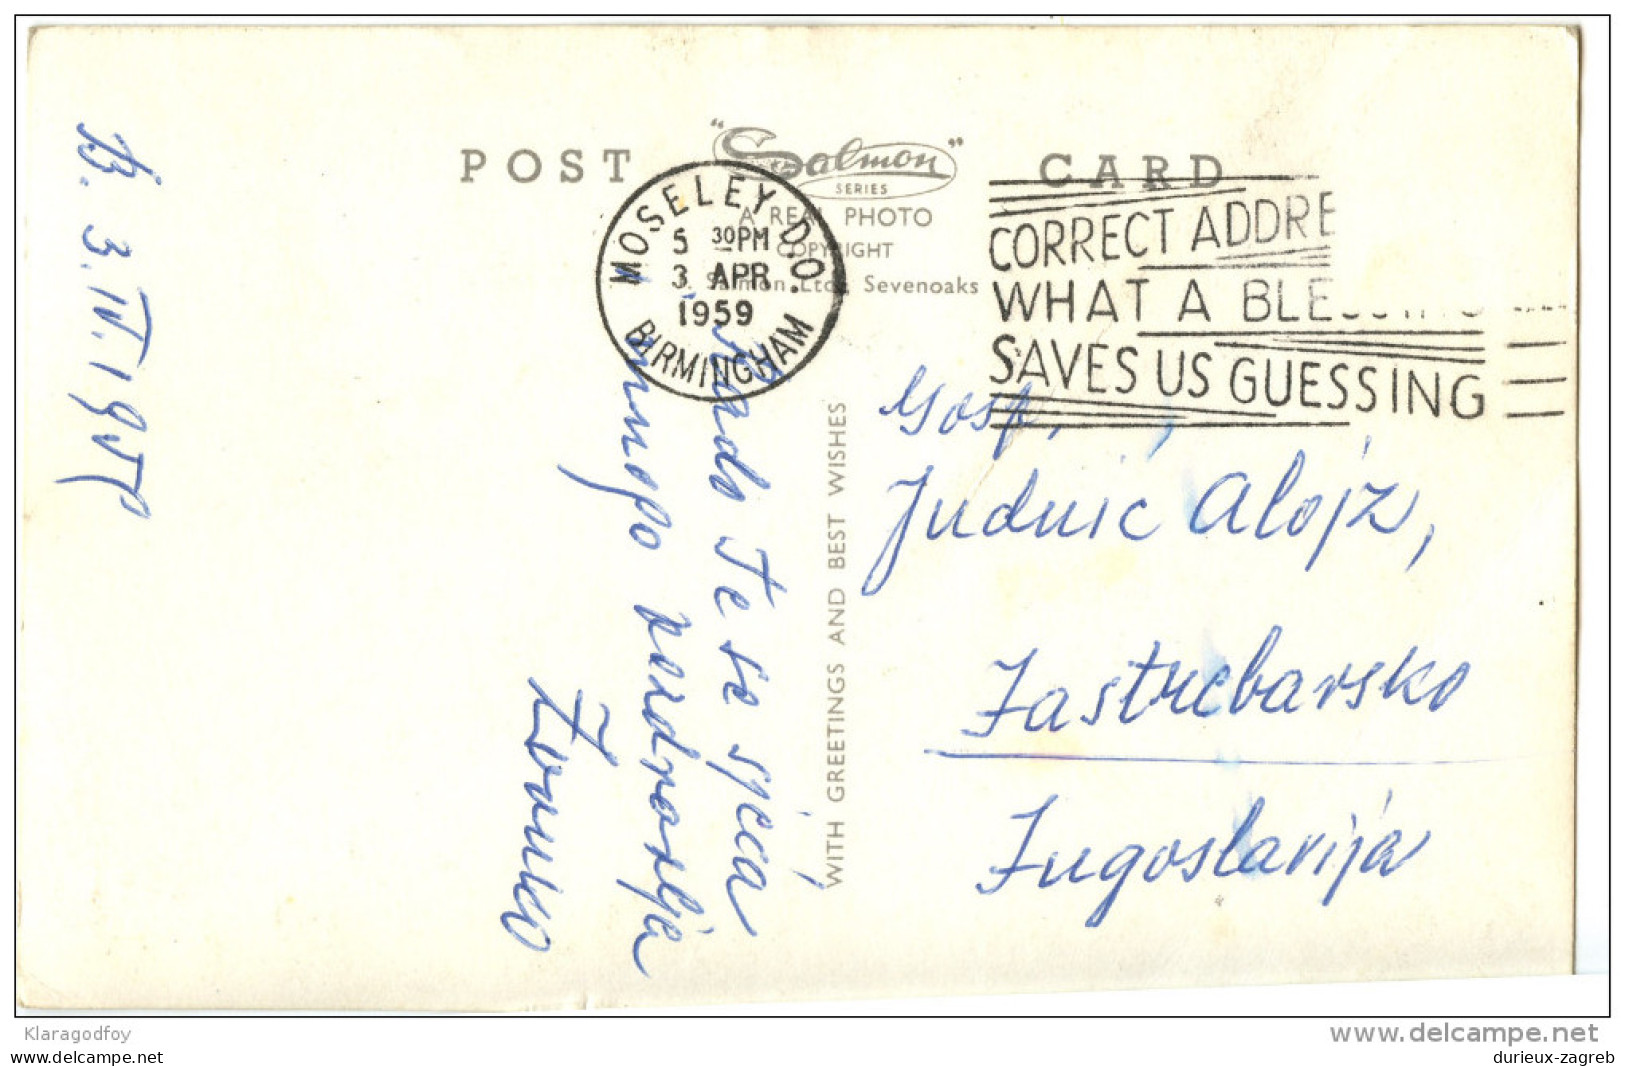 POST CARD
"Salmon"
SERIES
A REAL PHOTO
COPYRIGHT
Salmon Ltd. Sevenoaks
MOSELEY D.O.
5 30PM
3 APR.
1959
BIRMINGHAM
CORRECT ADDRE
WHAT A BLESSING
SAVES US GUESSING
WITH GREETINGS AND BEST WISHES
B. 3. IV. 1959
Rado Te se sjeća,
mnogo pozdravlja
Zvonko
Gosp.
Judnić Alojz,
Jastrebarsko
Jugoslavija
Klaragodfoy
delcampe.net
www.delcampe.com
durieux-zagreb